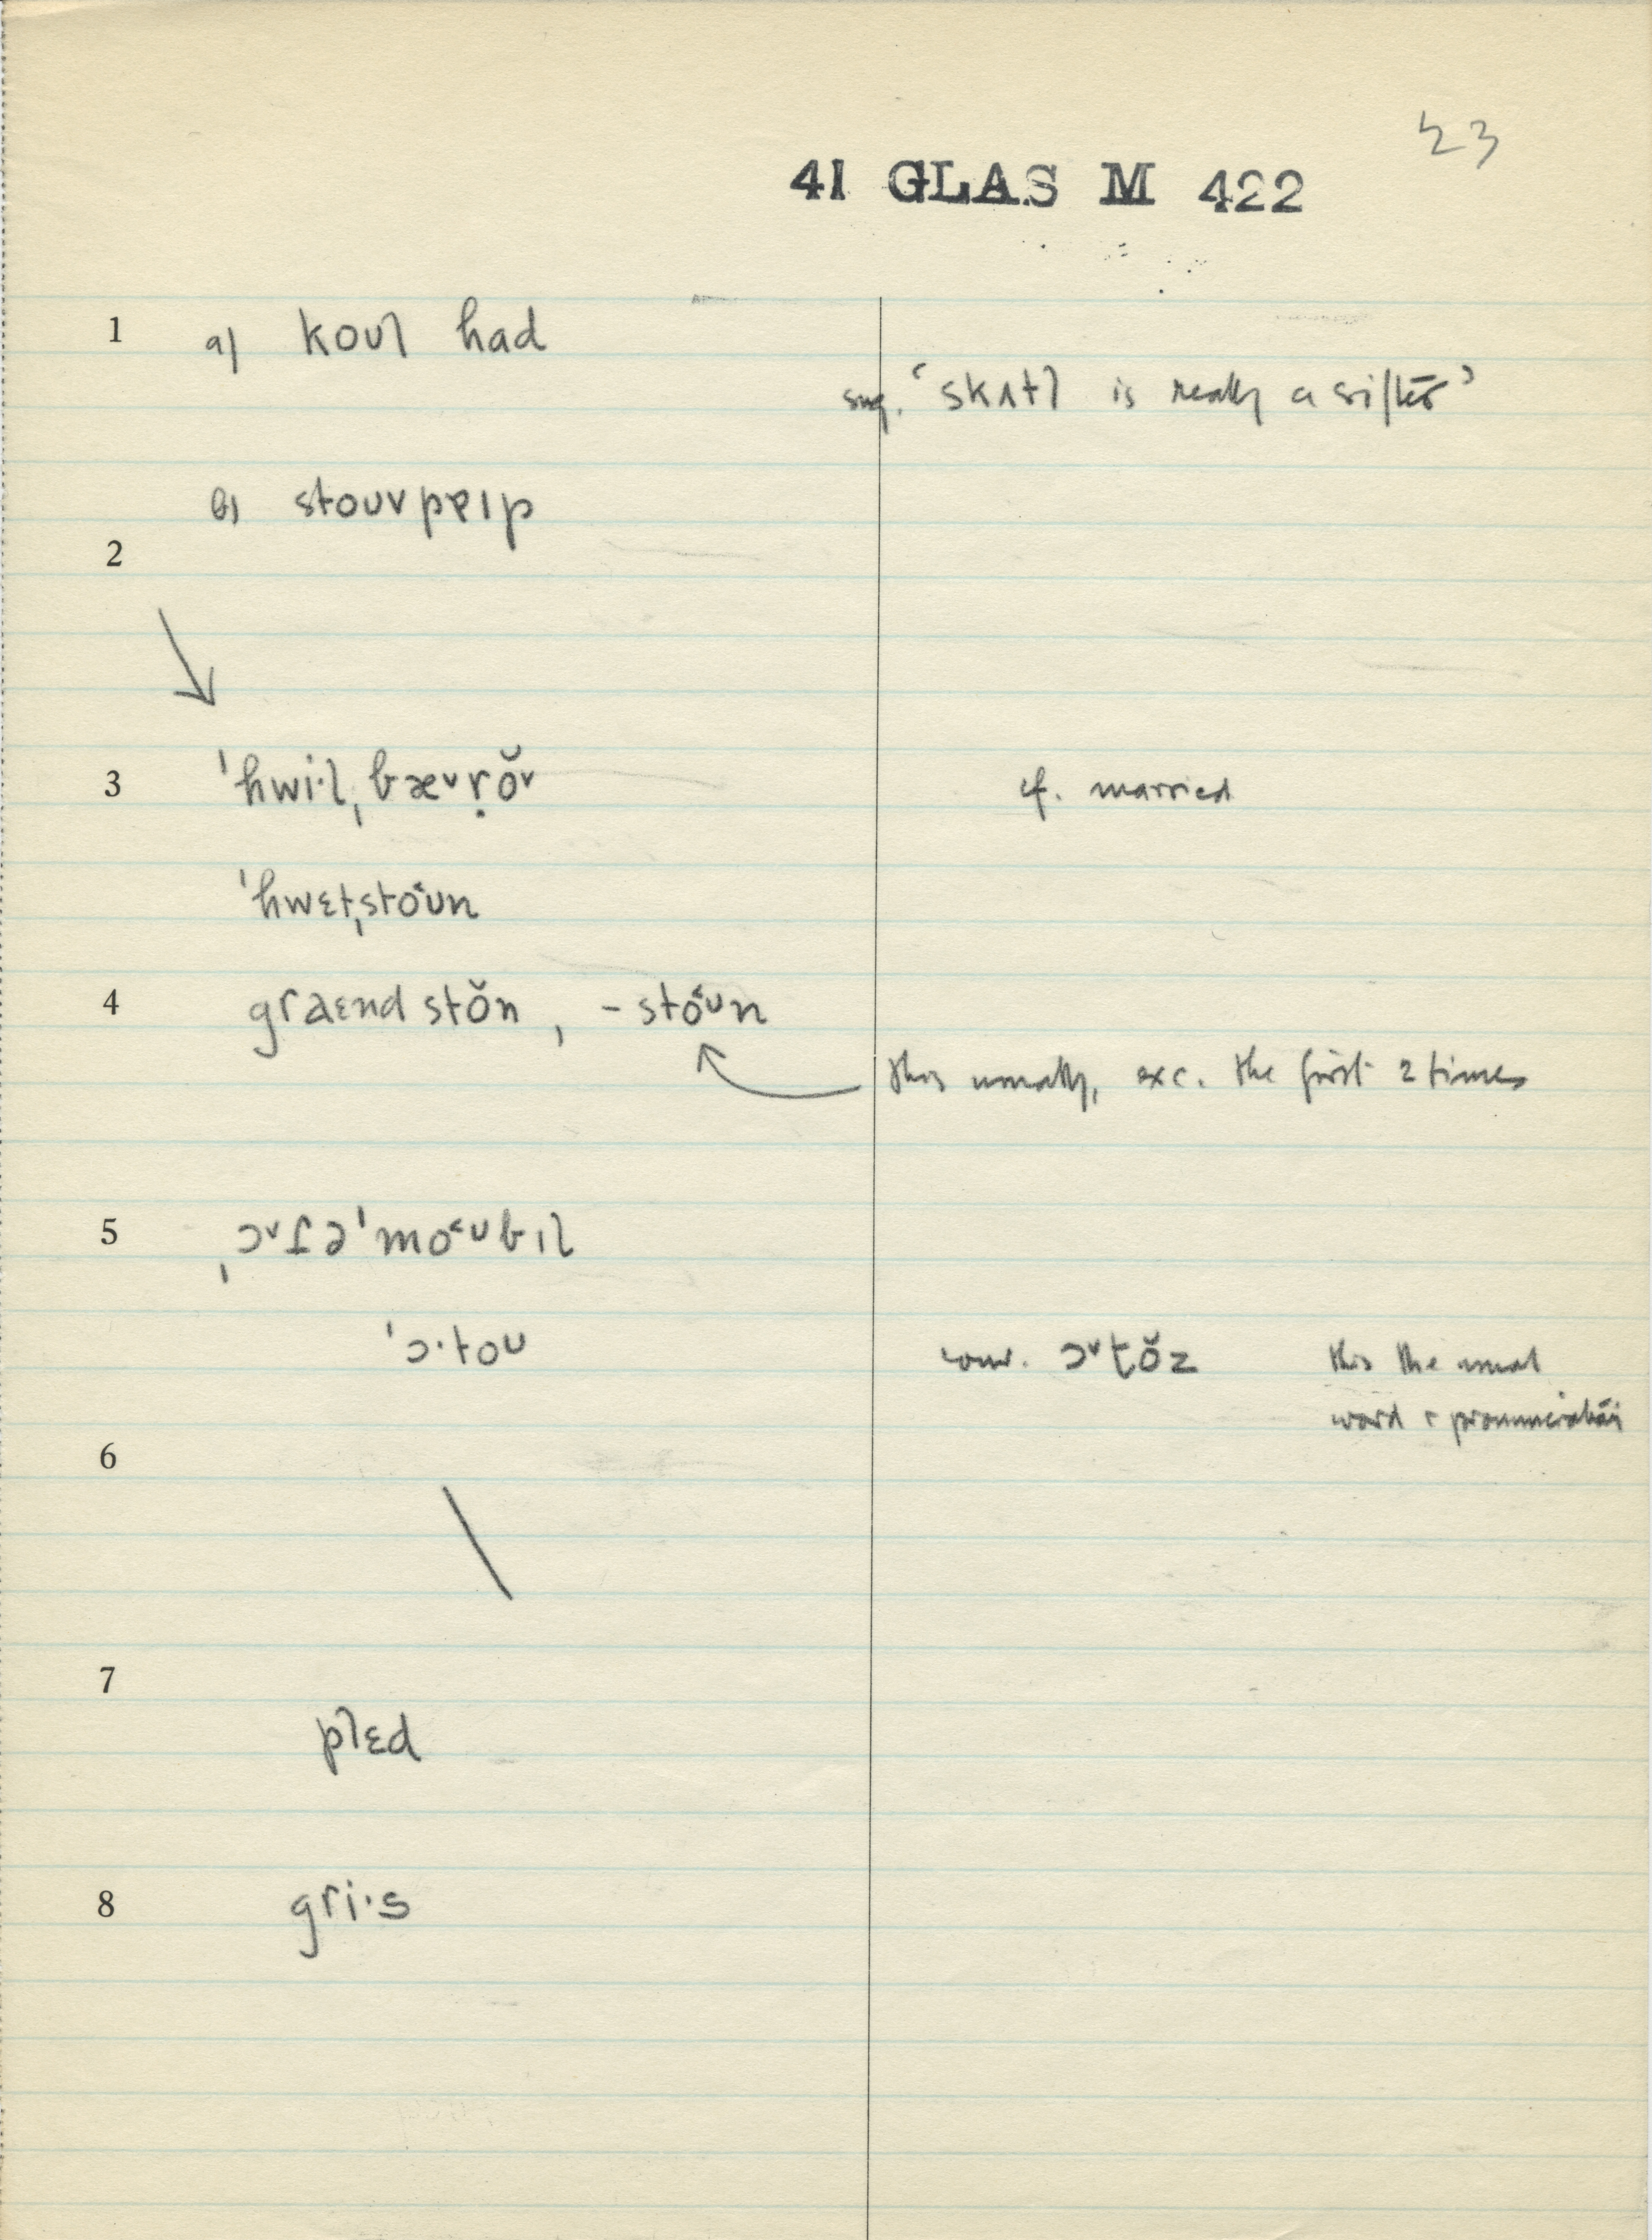 23
41 GLAS M 422
1 a) koʊl had
sug. ‘skʌtl is really a sifter’
b) stoʊv pɐɪp
2
3 ˈhwi·lˌbæ˅ṛŏ˅ cf. married
ˈhwɛtˌsto˂ʊn
4 graɛnd stŏn, – sto˂ʊn
this usually, exc. the first 2 times
5 ˌɔ˅ɾəˈmo˂ʊbɪl
ˈɔ·toʊ conv. ɔ˅t̬ŏz this the usual
word + pronunciation
6
7
plɛd
8 gri·s